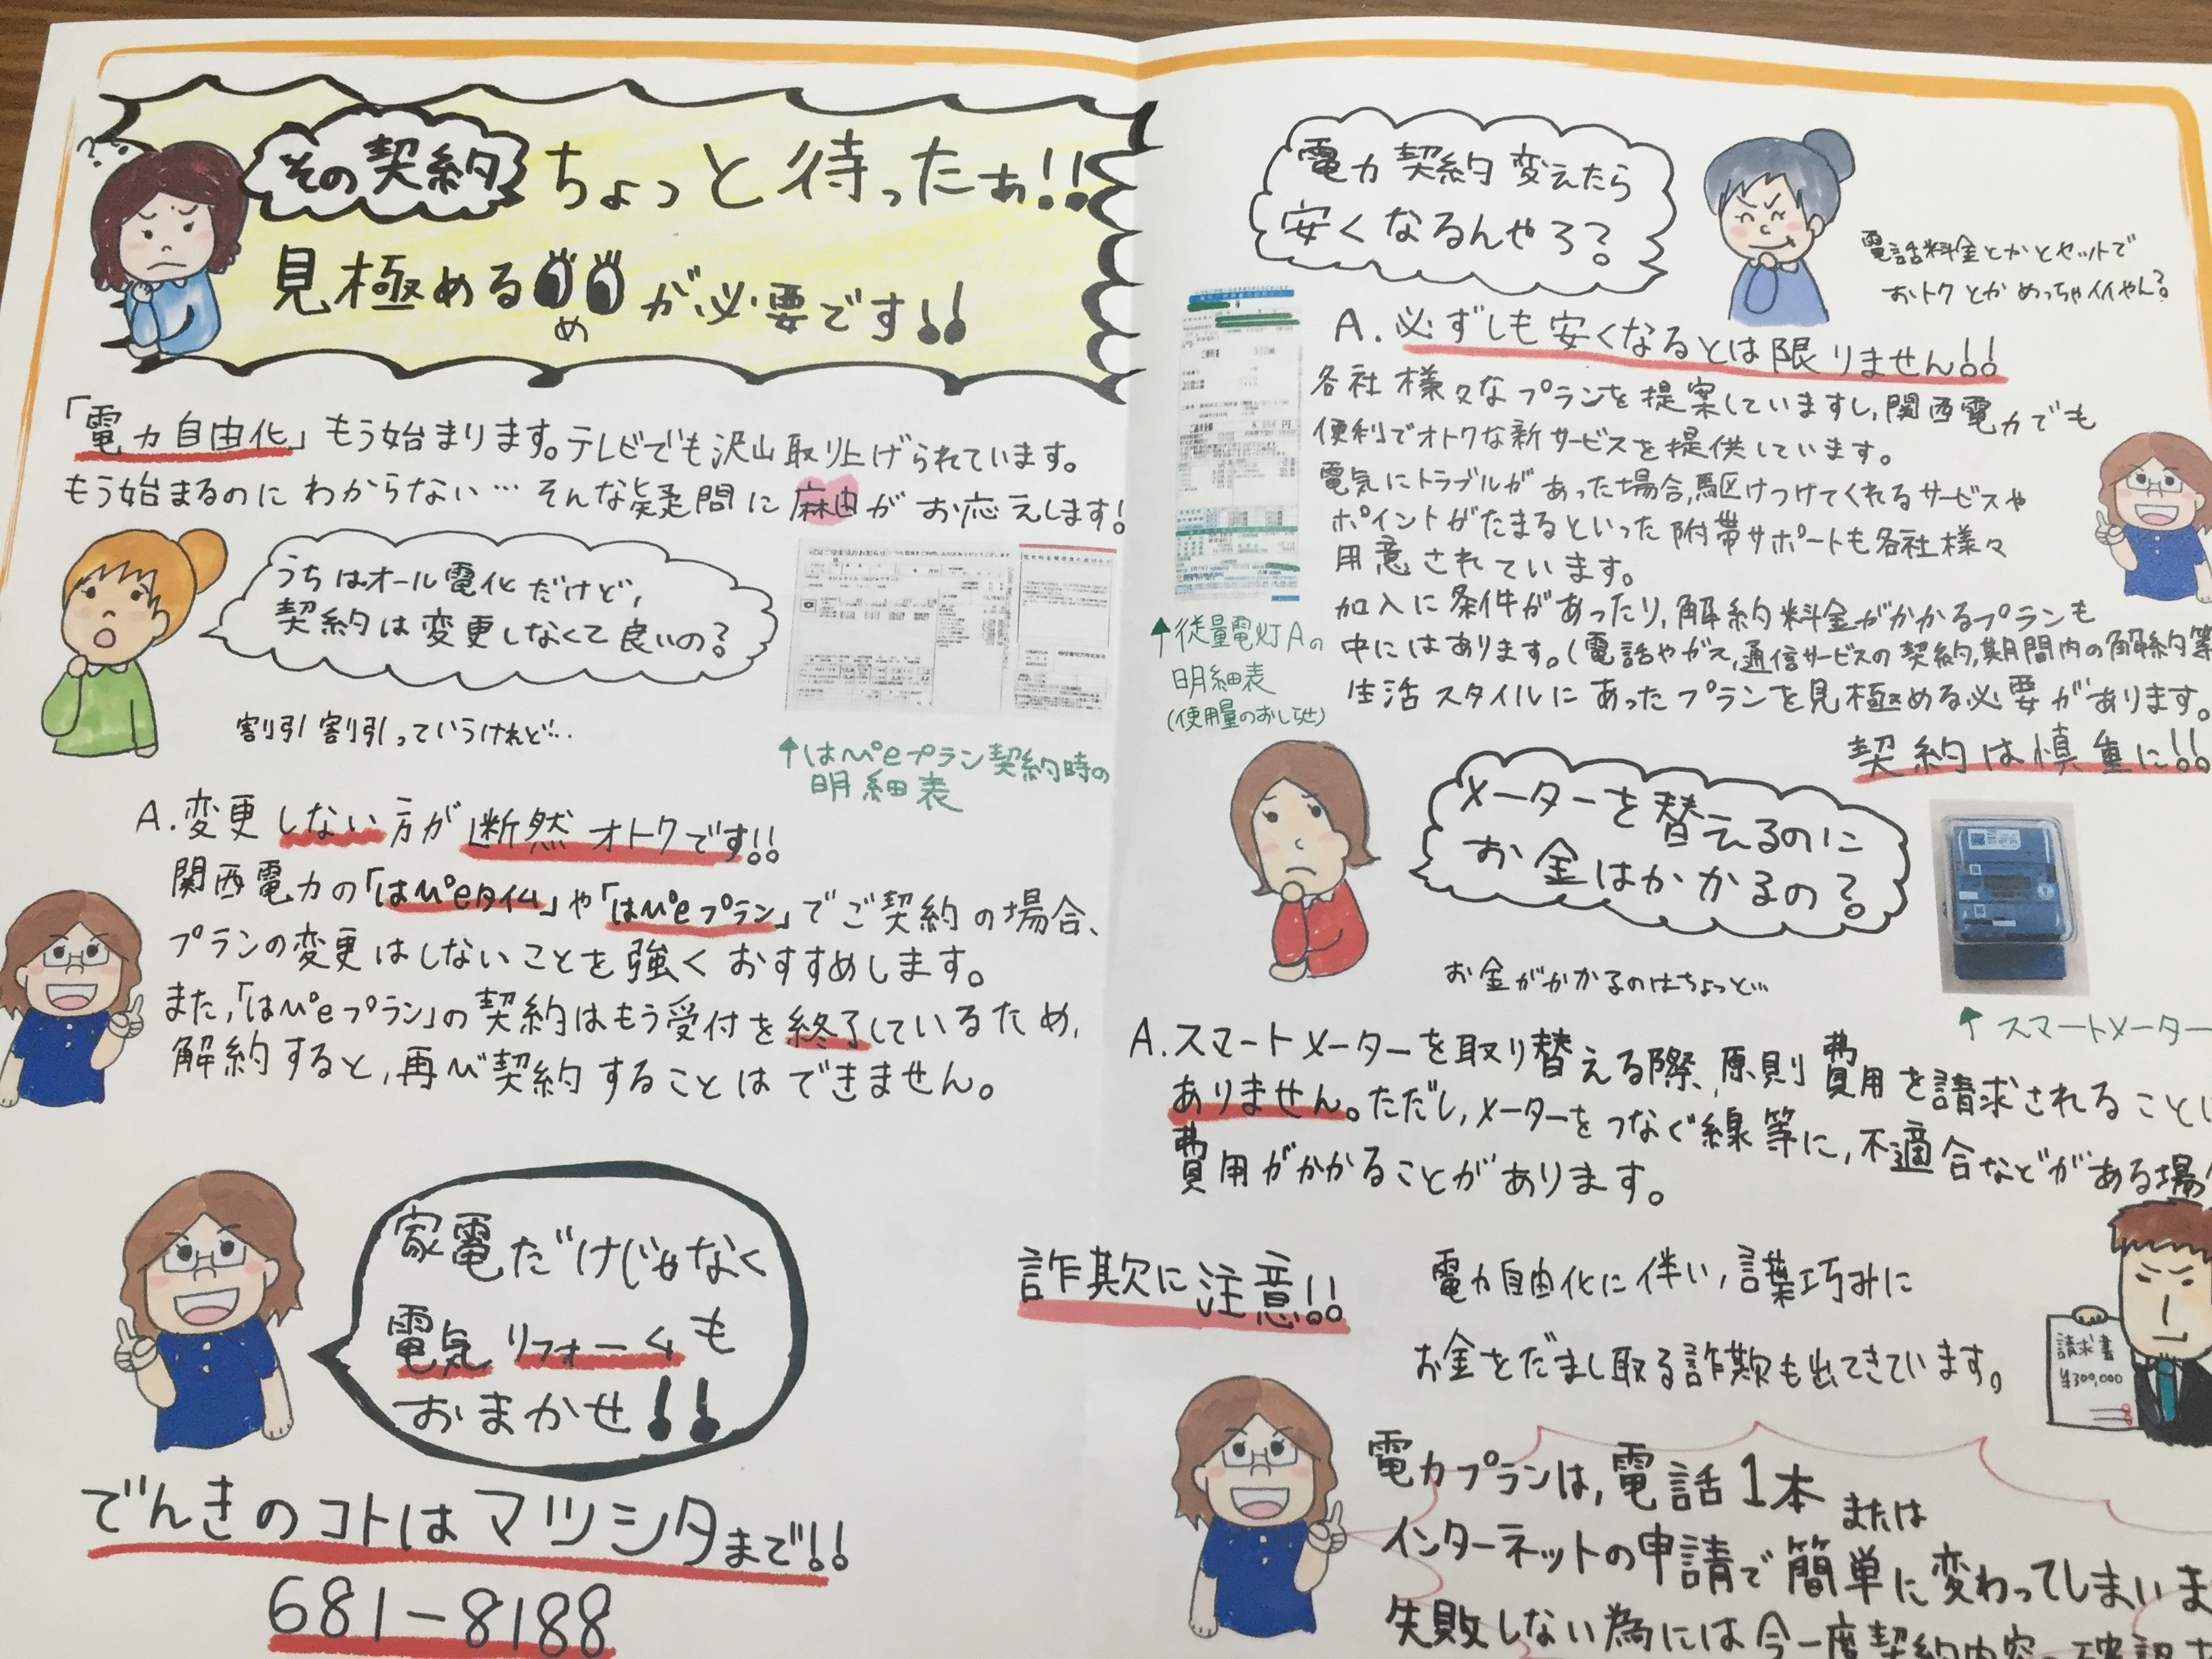 その契約 ちょっと待ったぁ!!
見極める
め
が必要です!!
「電力自由化」もう始まります。テレビでも沢山取り上げられています。
もう始まるのにわからない…そんな疑問に麻由がお応えします!
うちはオール電化だけど,
契約は変更しなくて良いの?
割引割引っていうけれど…
↑はぴeプラン契約時の
明細表
A.変更しない方が断然オトクです!!
関西電力の「はぴeタイム」や「はぴeプラン」でご契約の場合、
プランの変更はしないことを強くおすすめします。
また,「はぴeプラン」の契約はもう受付を終了しているため,
解約すると,再び契約することはできません。
家電だけじゃなく
電気リフォームも
おまかせ!!
でんきのコトはマツシタまで!!
681-8188
電力契約変えたら
安くなるんやろ?
電話料金とかとセットで
おトクとかめっちゃイイやん?
A.必ずしも安くなるとは限りません!!
各社様々なプランを提案していますし,関西電力でも
便利でオトクな新サービスを提供しています。
電気にトラブルがあった場合,駆けつけてくれるサービスや
ポイントがたまるといった附帯サポートも各社様々
用意されています。
加入に条件があったり,解約料金がかかるプランも
中にはあります。(電話やガス,通信サービスの契約,期間内の解約等
生活スタイルにあったプランを見極める必要があります。
契約は慎重に!!
↑従量電灯Aの
明細表
(使用量のおしらせ)
メーターを替えるのに
お金はかかるの?
お金がかかるのはちょっと…
↑スマートメーター
A.スマートメーターを取り替える際,原則費用を請求されることは
ありません。ただし,メーターをつなぐ線等に,不適合などがある場合
費用がかかることがあります。
詐欺に注意!!
電力自由化に伴い,言葉巧みに
お金をだまし取る詐欺も出てきています。
請求書
¥300,000
電力プランは,電話1本または
インターネットの申請で簡単に変わってしまいま
失敗しない為には今一度契約内容